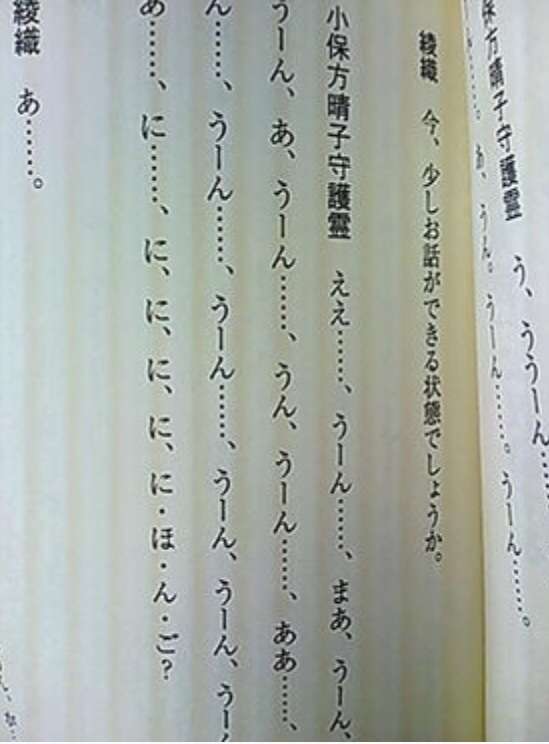 保方晴子守護霊　う、ううーん……
ん……。あ、うん。うーん……。うーん……。
綾織　今、少しお話ができる状態でしょうか。
小保方晴子守護霊　ええ……、うーん……、まあ、うーん、
うーん、あ、うーん……、うん、うーん……、ああ……、
ん……、うーん……、うーん……、うーん、うーん、うー
あ……、に……、に、に、に、に、に・ほ・ん・ご？
綾織　あ……。